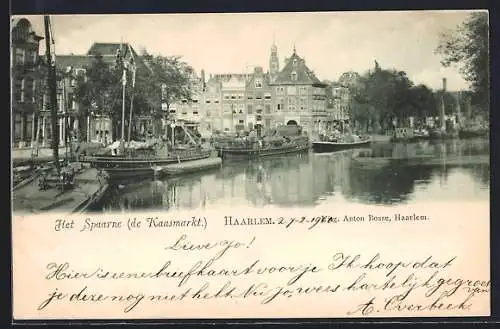 Het Spaarne (de Kaasmarkt). HAARLEM. 27-2-190 Anton Bosse, Haarlem.
Lieve Jo!
Hier is eene briefkaart voor je. Ik hoop dat
je deze nog niet hebt. Nu Jo, wees hartelijk gegroet van
A. Overbeek